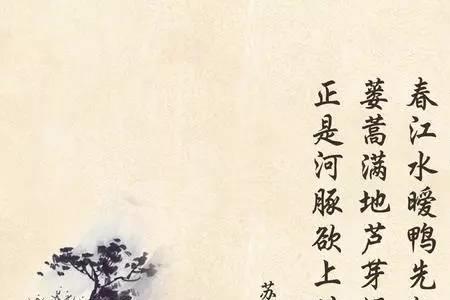 春江水暧鸭先
蒌蒿满地芦芽
正是河豚欲上
苏